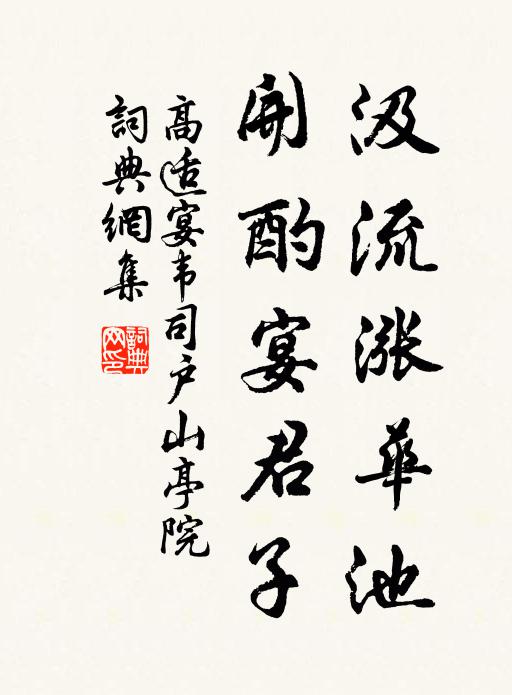 汲流涨華池
開酌宴君子
高适宴韦司户山亭院
詞典網集
詞典网印